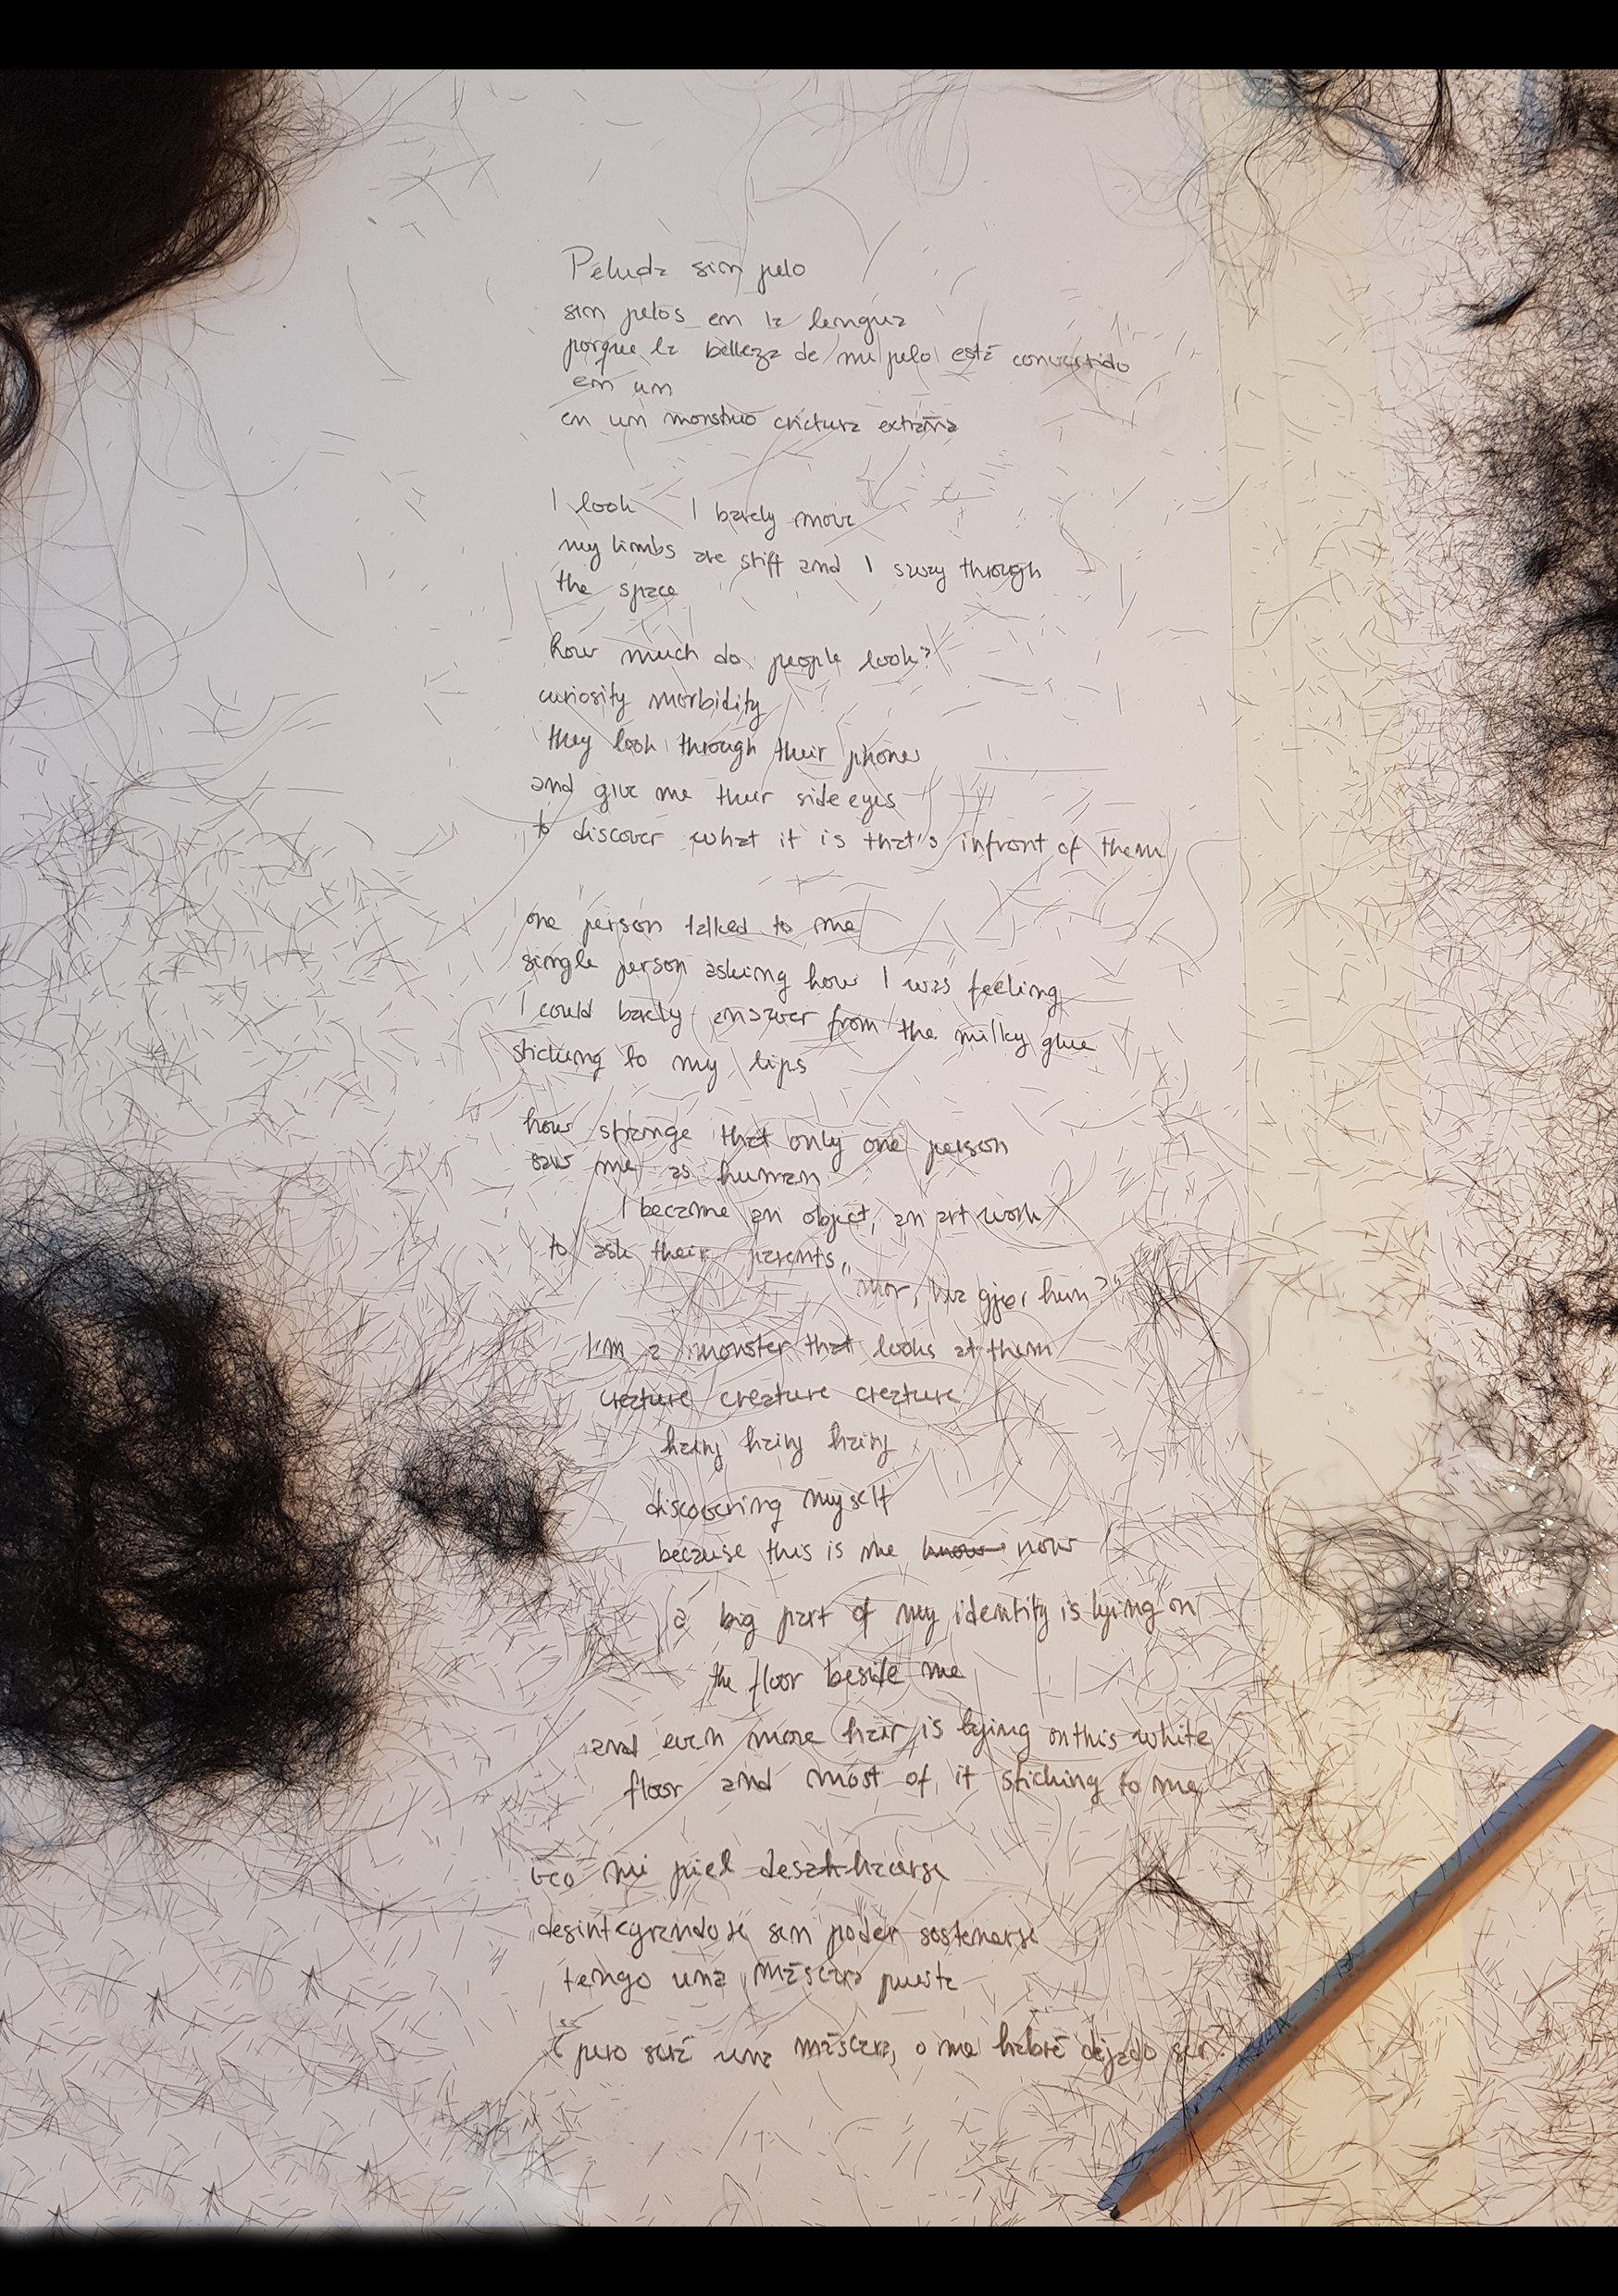 Peluda sin pelo
sin pelos en la lengua
porque la belleza de mi pelo está convertido
en un
en un monstruo crictura extraña
I look I barely move
my limbs are stiff and I sway through
the space
how much do people look?
curiosity morbidity
they look through their phones
and give me their side eyes
to discover what it is that's infront of them
one person talked to me
single person asking how I was feeling
I could barely answer from the milky glue
sticking to my lips
how strange that only one person
saw me as human
I became an object, an art work
to ask their parents,
"mor, hva gjør hun?"
I'm a monster that looks at them
creature creature creature
hairy hairy hairy
discovering myself
because this is me know now
a big part of my identity is lying on
the floor beside me
and even more hair is lying on this white
floor and most of it sticking to me
veo mi piel
desintegrandose sin poder sostenerse
tengo una máscara puesta
¿pero será una máscara, o me habré dejado ser?